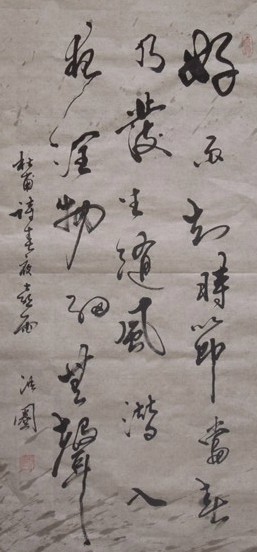 好雨知時節當春
乃發生隨風潛入
夜潤物細無聲
杜甫詩春夜喜雨